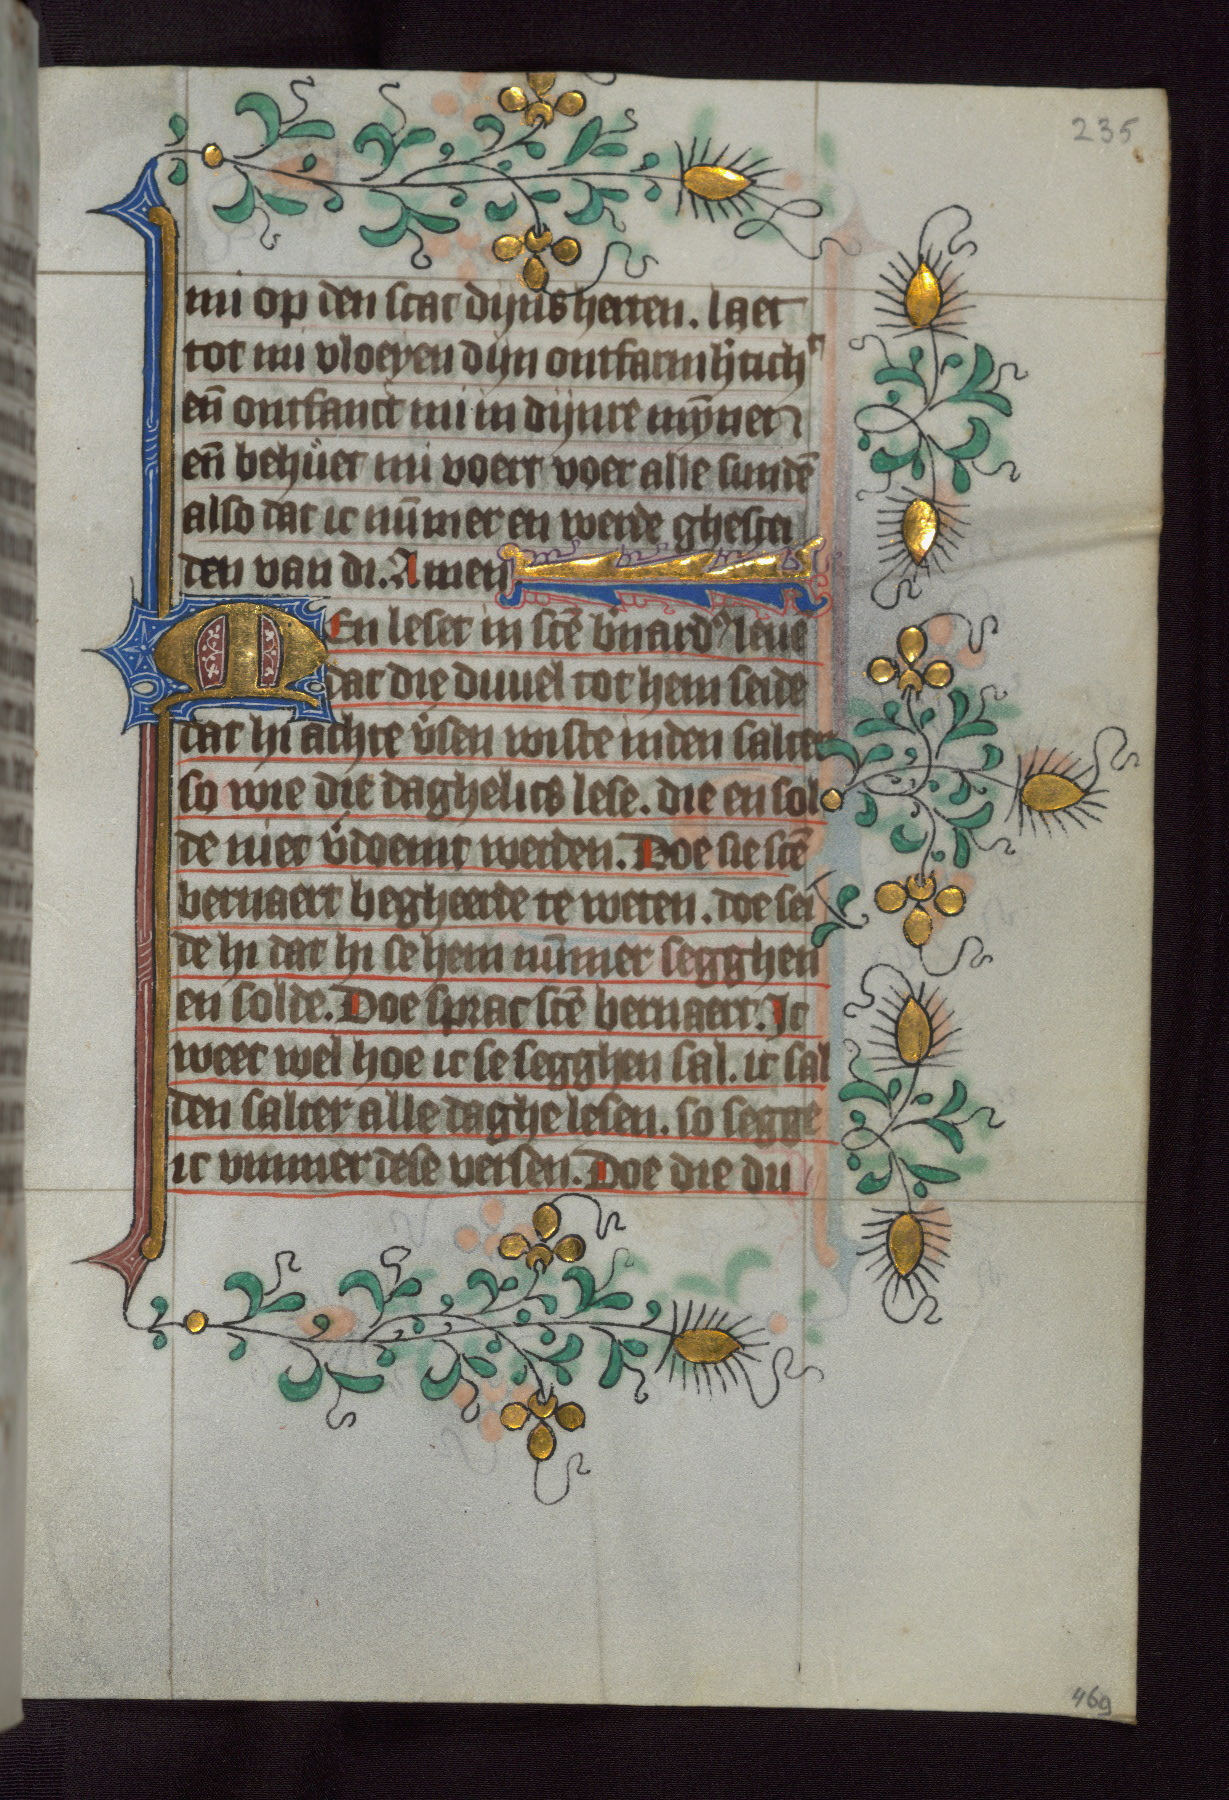 235
mi op den scat dijns herten. laet
tot mi vloeyen dijn ontfarmh'tich^t
en̄ ontfanct mi in dijnre mȳnen
en̄ behůet mi voert voer alle sundē
also dat ic nūmer en werde ghescei
den van di. Amen
Men leset in scē b'nard9 leue
dat die duuel tot hem seide
dat hi achte v'sen wiste inden salter
so wie die daghelics lese. die en sol
de niet v'doemt werden. Doe sie scē
bernaert begheerde te weten. doe sei
de hi dat hi se hem nūmer segghen
en solde. Doe sprac scē bernaert. Ic
weet wel hoe ic se segghen sal. ic sal
den salter alle daghe lesen. so segge
ic ummer dese versen. Doe die du
469